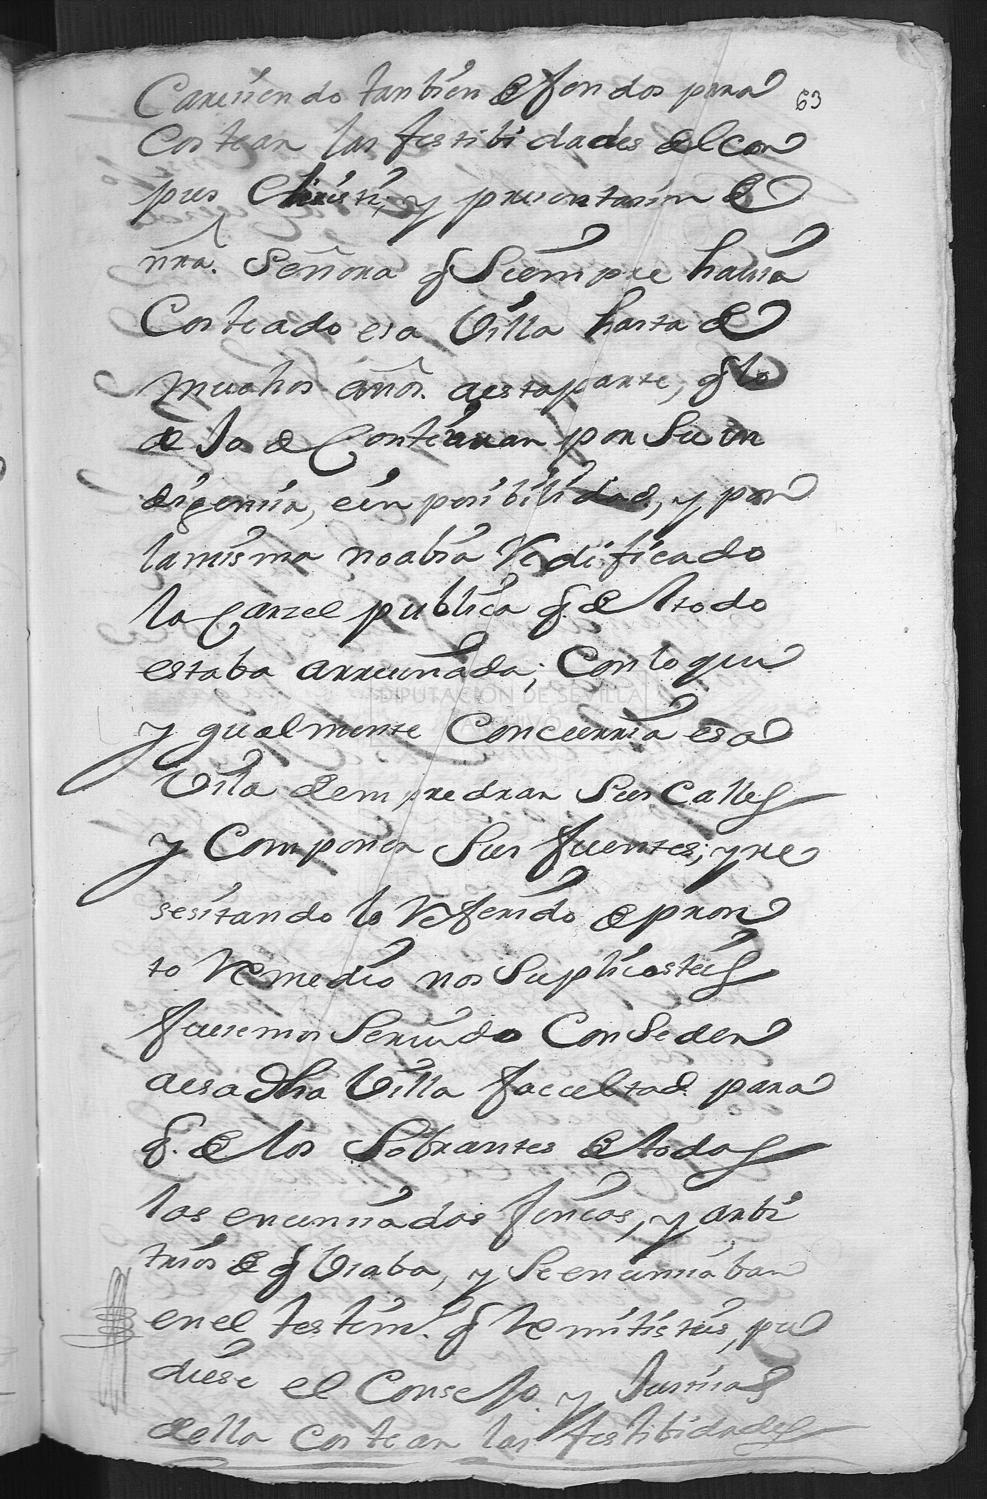 Careciendo tanbien de fondos para
63
Costear las festibidades del Cor
pus Christi, y presentacion de
nra. Señora q Siempre havia
Costeado esa Villa hasta de
muchos años. a esta parte, q lo
de Jo de Continuar por Su in
digencia, e in posibilidad, y por
la misma no abia Redificado
la Carzel publica q. del todo
estaba arruinada; Con lo que
y gualmente Concurria esa
Villa de enpredrar Sus Calles
y Componer Sus fuentes; y ne
sesitando lo Referido de pron
to Remedio nos Suplicasteis
fuesemos Servido Conseder
a esa dha Villa facultad para
q. de los Sobrantes de todos
los enunciados fincas, y arbi
trios de q Usaba, y Se enunciaban
en el testim.º q Remitisteis, pu
diese el Consejo y Justicia
della Costear las festibidades
DIPUTACIÓN DE SEVILLA
ARCHIVO